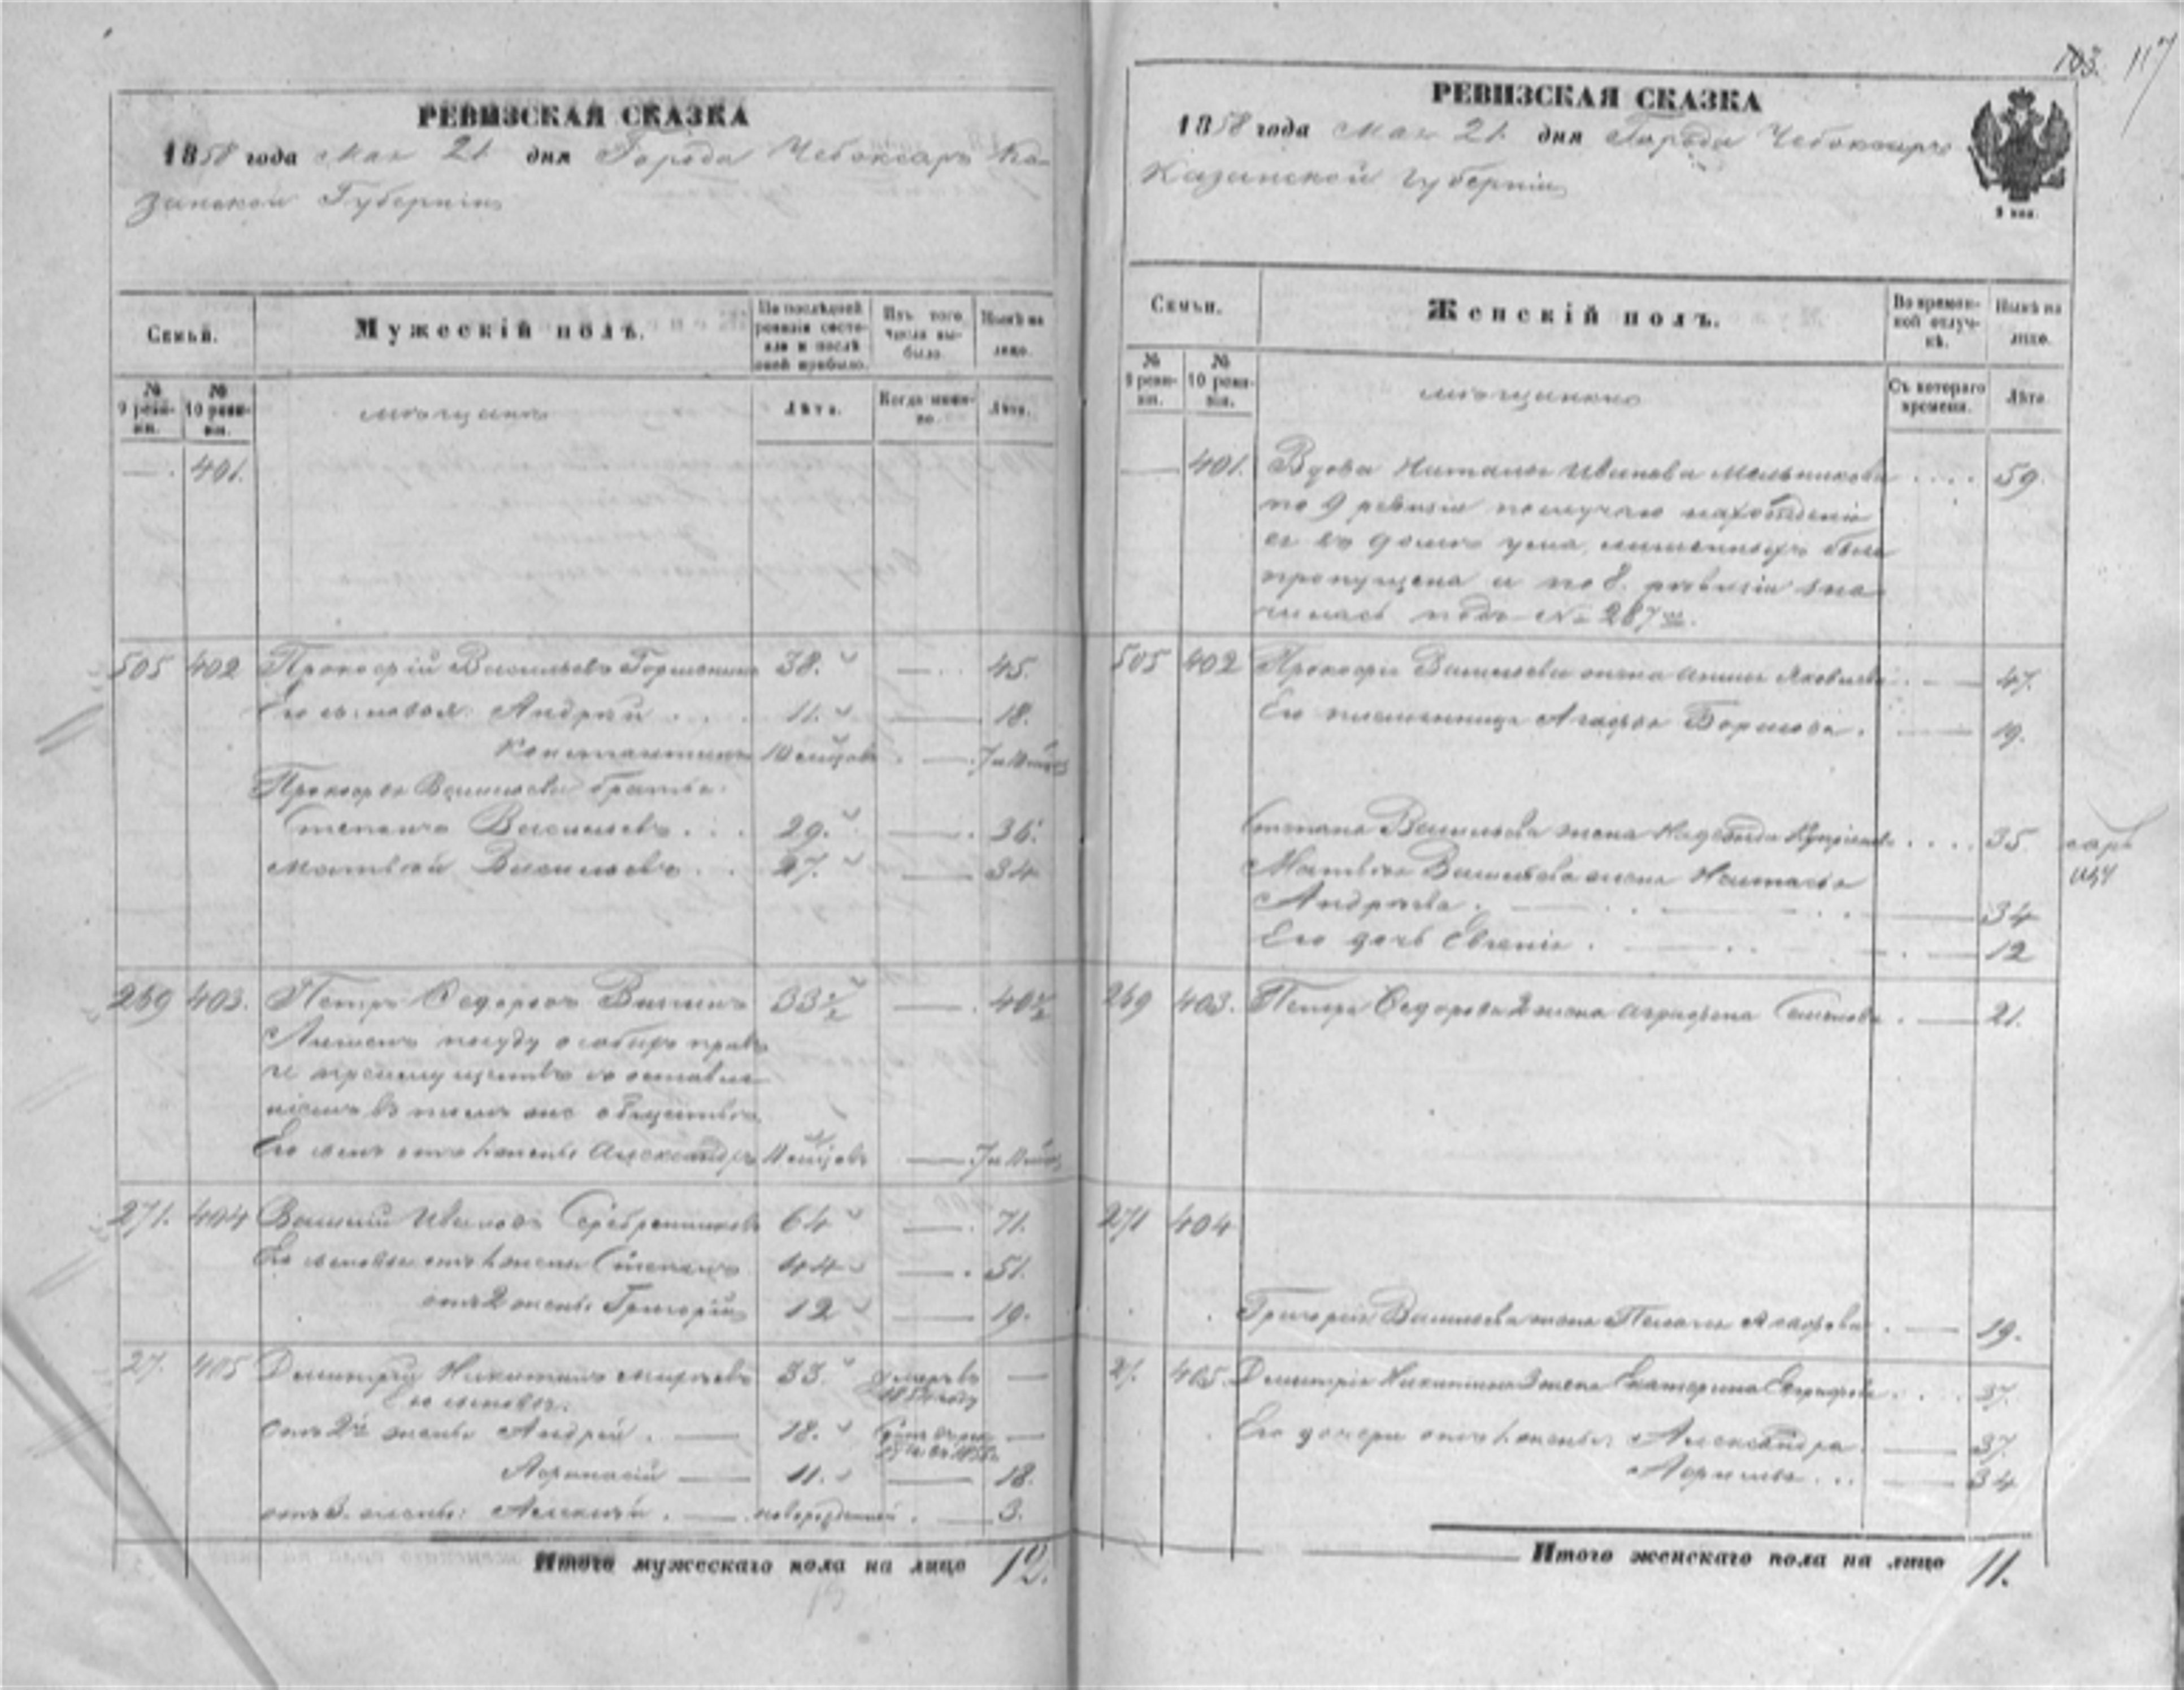 РЕВИЗСКАЯ СКАЗКА
1858 года Мая 21 дня Города Чебоксаръ Ка-
занской Губернiи
Семьи.
Мужескiй полъ.
По послѣдней ревизiи состо-
яло и послѣ оной прибыло.
Изъ того числа вы-
было.
Нынѣ на лицо.
№ 9 реви-
зiи.
№ 10 реви-
зiи.
мѣщане
Лѣта.
Когда имен-
но.
Лѣта.
— 401.
505 402 Прокофiй Васильевъ 38. — 45.
Его сыновья: Андрей 11. — 18.
Константинъ —
Прокофья Васильева братья:
Степанъ Васильевъ 29. — 36.
Матвѣй Васильевъ 27. — 34
269 403. Петръ Федоровъ 33½ — 40½
Лишенъ по суду особыхъ правъ
и преимуществъ съ оставле-
нiемъ въ томъ же обществѣ
Его сынъ отъ 1 жены Александръ —
271. 404 Василiй Ивановъ Серебренниковъ 64 — 71.
Его сыновья отъ 1 жены Степанъ 44 — 51.
отъ 2 жены Григорiй 12 — 19.
27. 405 Дмитрiй Никитинъ 33. умеръ въ —
Его сыновья:
отъ 2й жены Андрей 18. —
Афанасiй 11. — 18.
отъ 3. жены: Алексѣй новорожденный — 3.
Итого мужескаго пола на лицо 12.
103. 117
РЕВИЗСКАЯ СКАЗКА
1858 года Мая 21. дня Города Чебоксаръ
Казанской Губернiи
Семьи.
Женскiй полъ.
Во времен-
ной отлуч-
кѣ.
Нынѣ на лицо.
№ 9 реви-
зiи.
№ 10 реви-
зiи.
мѣщанки
Съ котораго времени.
Лѣта
— 401. Вдова Наталья Иванова Мельникова 59.
по 9 ревизiи по случаю нахожденiя
ея въ домѣ ума лишенныхъ была
пропущена и по 8. ревизiи зна-
чилась подъ № 287
505 402 Прокофья Васильева жена Анна Яковлева — 47.
Его племянница Агафья — 19.
Степана Васильева жена Надежда 35
Матвѣя Васильева жена Настасья
Андреева — 34
Его дочь Евгенiя — 12
269 403. Петра Федорова 2 жена Аграфена Семенова — 21.
271 404
Григорiя Васильева жена Пелагея — 19.
27. 405. Дмитрiя Никитина 3 жена Екатерина 37.
Его дочери отъ 1. жены: Александра — 37.
— 34
Итого женскаго пола на лицо 11.